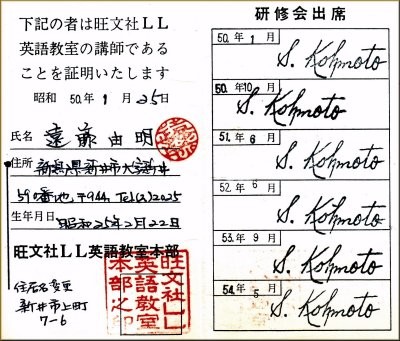 下記の者は旺文社LL
英語教室の講師である
ことを証明いたします
昭和 50年 1月 25日
氏名 遠藤由明
住所 新潟県新井市大字
59番地 〒944 Tel(2)2025
生年月日 昭和25年2月22日
旺文社LL英語教室本部
旺文社LL
英語教室
本部之印
住居名変更
新井市上町
7-6
研修会出席
50. 年 1 月
S. Kohmoto
50. 年 10 月
S. Kohmoto
51. 年 6 月
S. Kohmoto
52. 年 6 月
S. Kohmoto
53. 年 9 月
S. Kohmoto
54. 年 5 月
S. Kohmoto